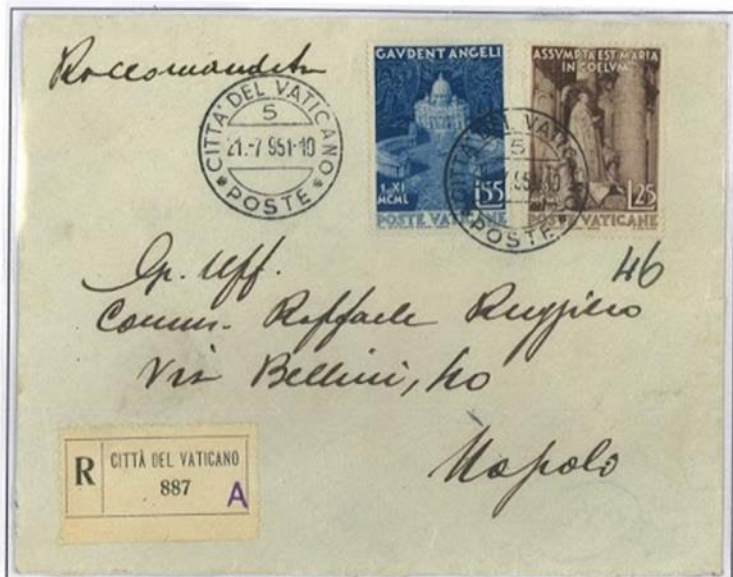 Raccomandata
CITTA' DEL VATICANO
5
21.-7 951-10
POSTE
GAVDENT ANGELI
1. XI
MCML
L55
POSTE VATICANE
ASSVMPTA EST MARIA
IN COELVM
L25
POSTE VATICANE
CITTA' DEL VATICANO
5
POSTE
46
Gr. Uff.
Comm. Raffaele Ruggiero
Via Bellini,
Napoli
R
CITTÀ DEL VATICANO
887
A